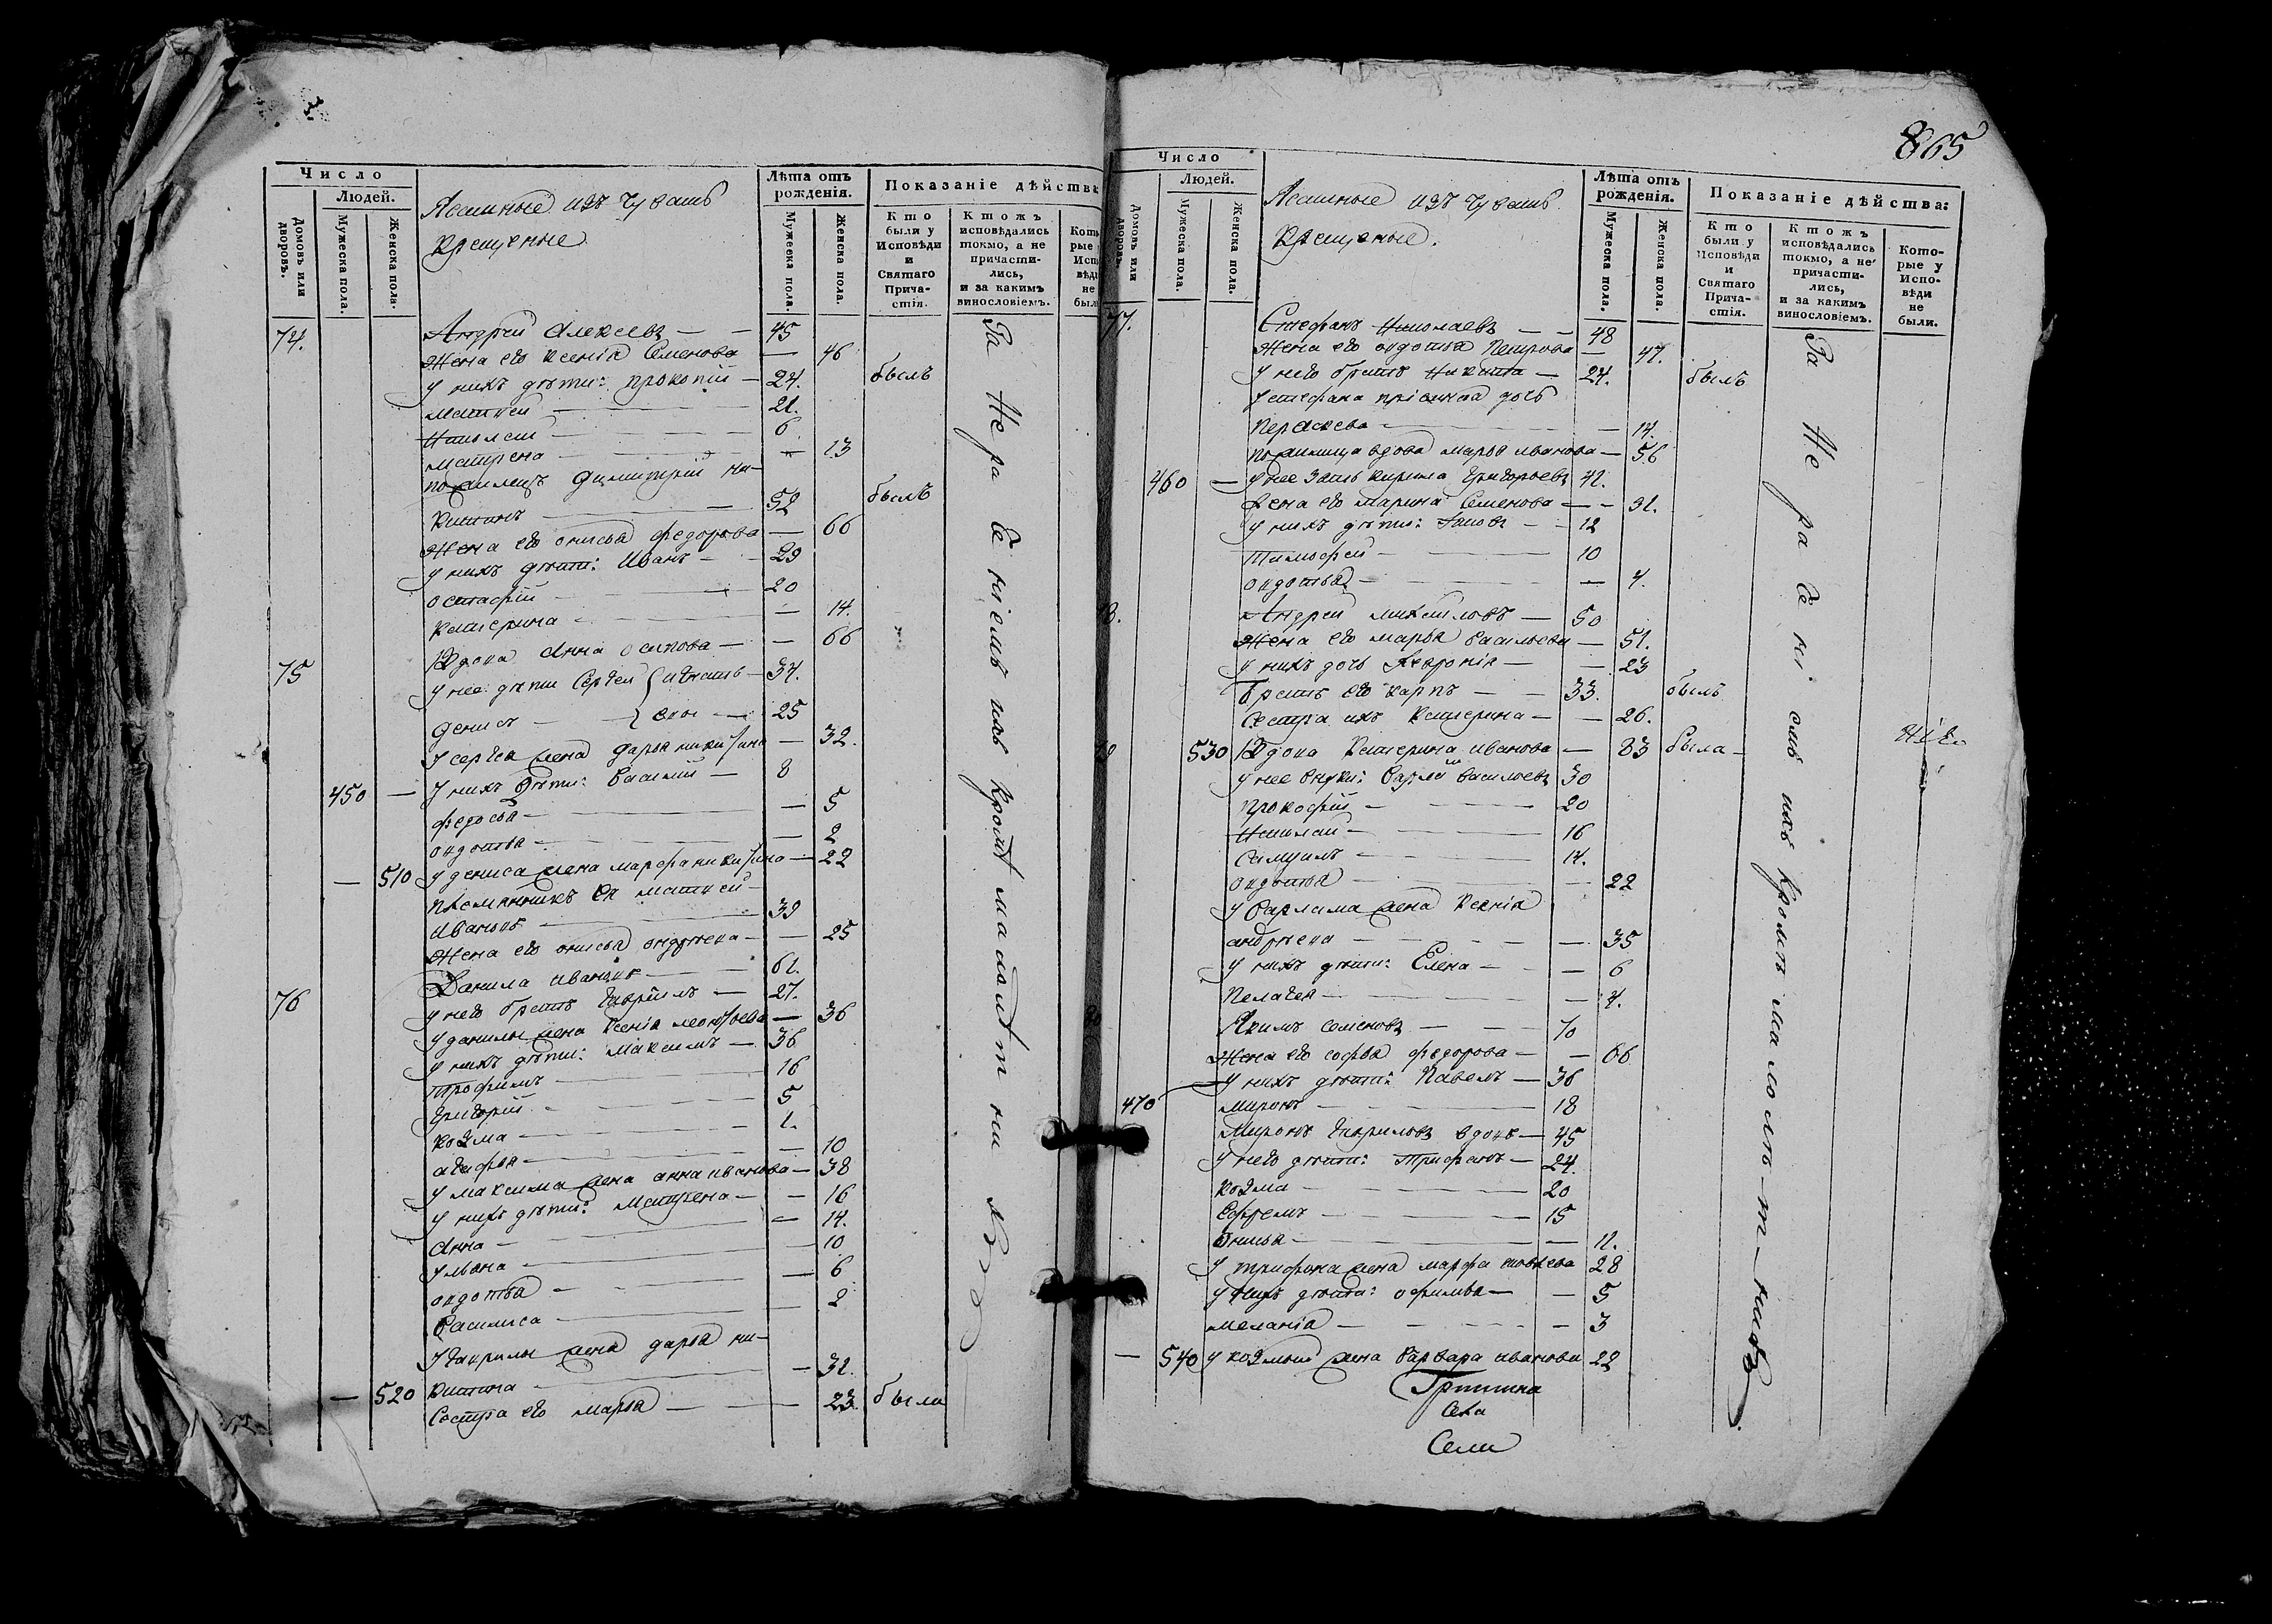 865
Число
Людей.
Домовъ или дворовъ.
Мужеска пола.
Женска пола.
Ясашные изъ Чувашъ
крещеные
Лѣта отъ рожденія.
Мужеска пола.
Женска пола.
Показаніе дѣйства
Кто были у Исповѣди и Святаго Прича-стія.
Ктожъ исповѣдались токмо, а не причасти-лись, и за какимъ винословіемъ.
74. Андрей Алексеевъ — 45
Жена его Ксенія Семенова — 46
У нихъ дѣти: Прокопій — 24. былъ
Матвей — 21.
Николай — 6
Матрена — 13
Димитрій Ни-
китинъ — 52 былъ
Жена его Онисья Федорова — 66
У нихъ дѣти: Иванъ — 29
Остафій — 20
Катерина — 14.
75 Вдова Анна Осипова — 66
У нее дѣти Сергей — 34.
Денисъ — 25
У Сергея жена Дарья Никитина — 32.
450 — У нихъ дѣти: Василий — 8
Федосья — 5
Овдотья — 2
— 510 У Дениса жена Марфа Никитина — 22
Племянникъ ея Матвей
Ивановъ — 39
Жена его Онисья Ондреева — 25
76 Данила Ивановъ — 61.
У него братъ Гаврилъ — 27.
У Данилы жена Ксенія Леонтьева — 36
У нихъ дѣти: Максимъ — 36
Трофимъ — 16
Григорій — 5
Козма — 1.
Агафья — 10
У Максима жена Анна Иванова — 38
У нихъ дѣти: Матрена — 16
Анна — 14.
Ульяна — 10
Овдотья — 6
Василиса — 2
У Гаврилы жена Дарья Ни-
китина — 31.
— 520 Сестра его Марья — 23 были
За не ра
ихъ кромѣ малолѣт
Число
Людей.
Домовъ или дворовъ.
Мужеска пола.
Женска пола.
Ясашные изъ Чувашъ
Крещеные.
Лѣта отъ рожденія.
Мужеска пола.
Женска пола.
Показаніе дѣйства:
Кто были у Исповѣди и Святаго Прича-стія.
Ктожъ исповѣдались токмо, а не причасти-лись, и за какимъ винословіемъ.
Кото-рые у Испо-вѣди не были.
77. Стефанъ Николаевъ — 48
Жена его Овдотья Петрова — 47.
У него братъ Никита — 24. былъ
У Стефана дочь
Пераскева — 14.
вдова Марья Иванова — 56
460 — У нее зять Кирила Григорьевъ 42.
Жена его Марина Семенова — 31.
У нихъ дѣти: — 12
Тимофей — 10
Овдотья — 4.
Андрей Михайловъ — 50
Жена его Марья Васильева — 51.
У нихъ дочь Февронія — 23
Братъ его Карпъ — 33. былъ
Сестра ихъ Катерина — 26.
530 Вдова Катерина Иванова — 83 была
У нее внуки: Васильевъ 30
Прокофій — 20
Николай — 16
Самуилъ — 14.
Овдотья — 22
У Варлама жена Ксенія
Андреева — 35
У нихъ дѣти: Елена — 6
Пелагея — 4.
Якимъ Семеновъ — 70
Жена его Софья Федорова — 66
У нихъ дѣти: Павелъ — 36
470 Миронъ — 18
Миронъ Гавриловъ вдовъ — 45
У него дѣти: Трифонъ — 24.
Козма — 20
Ефремъ — 15
Онисья — 11.
У Трифона жена Марфа 28
У нихъ дѣти: Офимья — 5
Меланія — 3
— 540 У Козмы жена Варвара Иванова 22
За не ра
ихъ кромѣ малолѣт
села
Сели